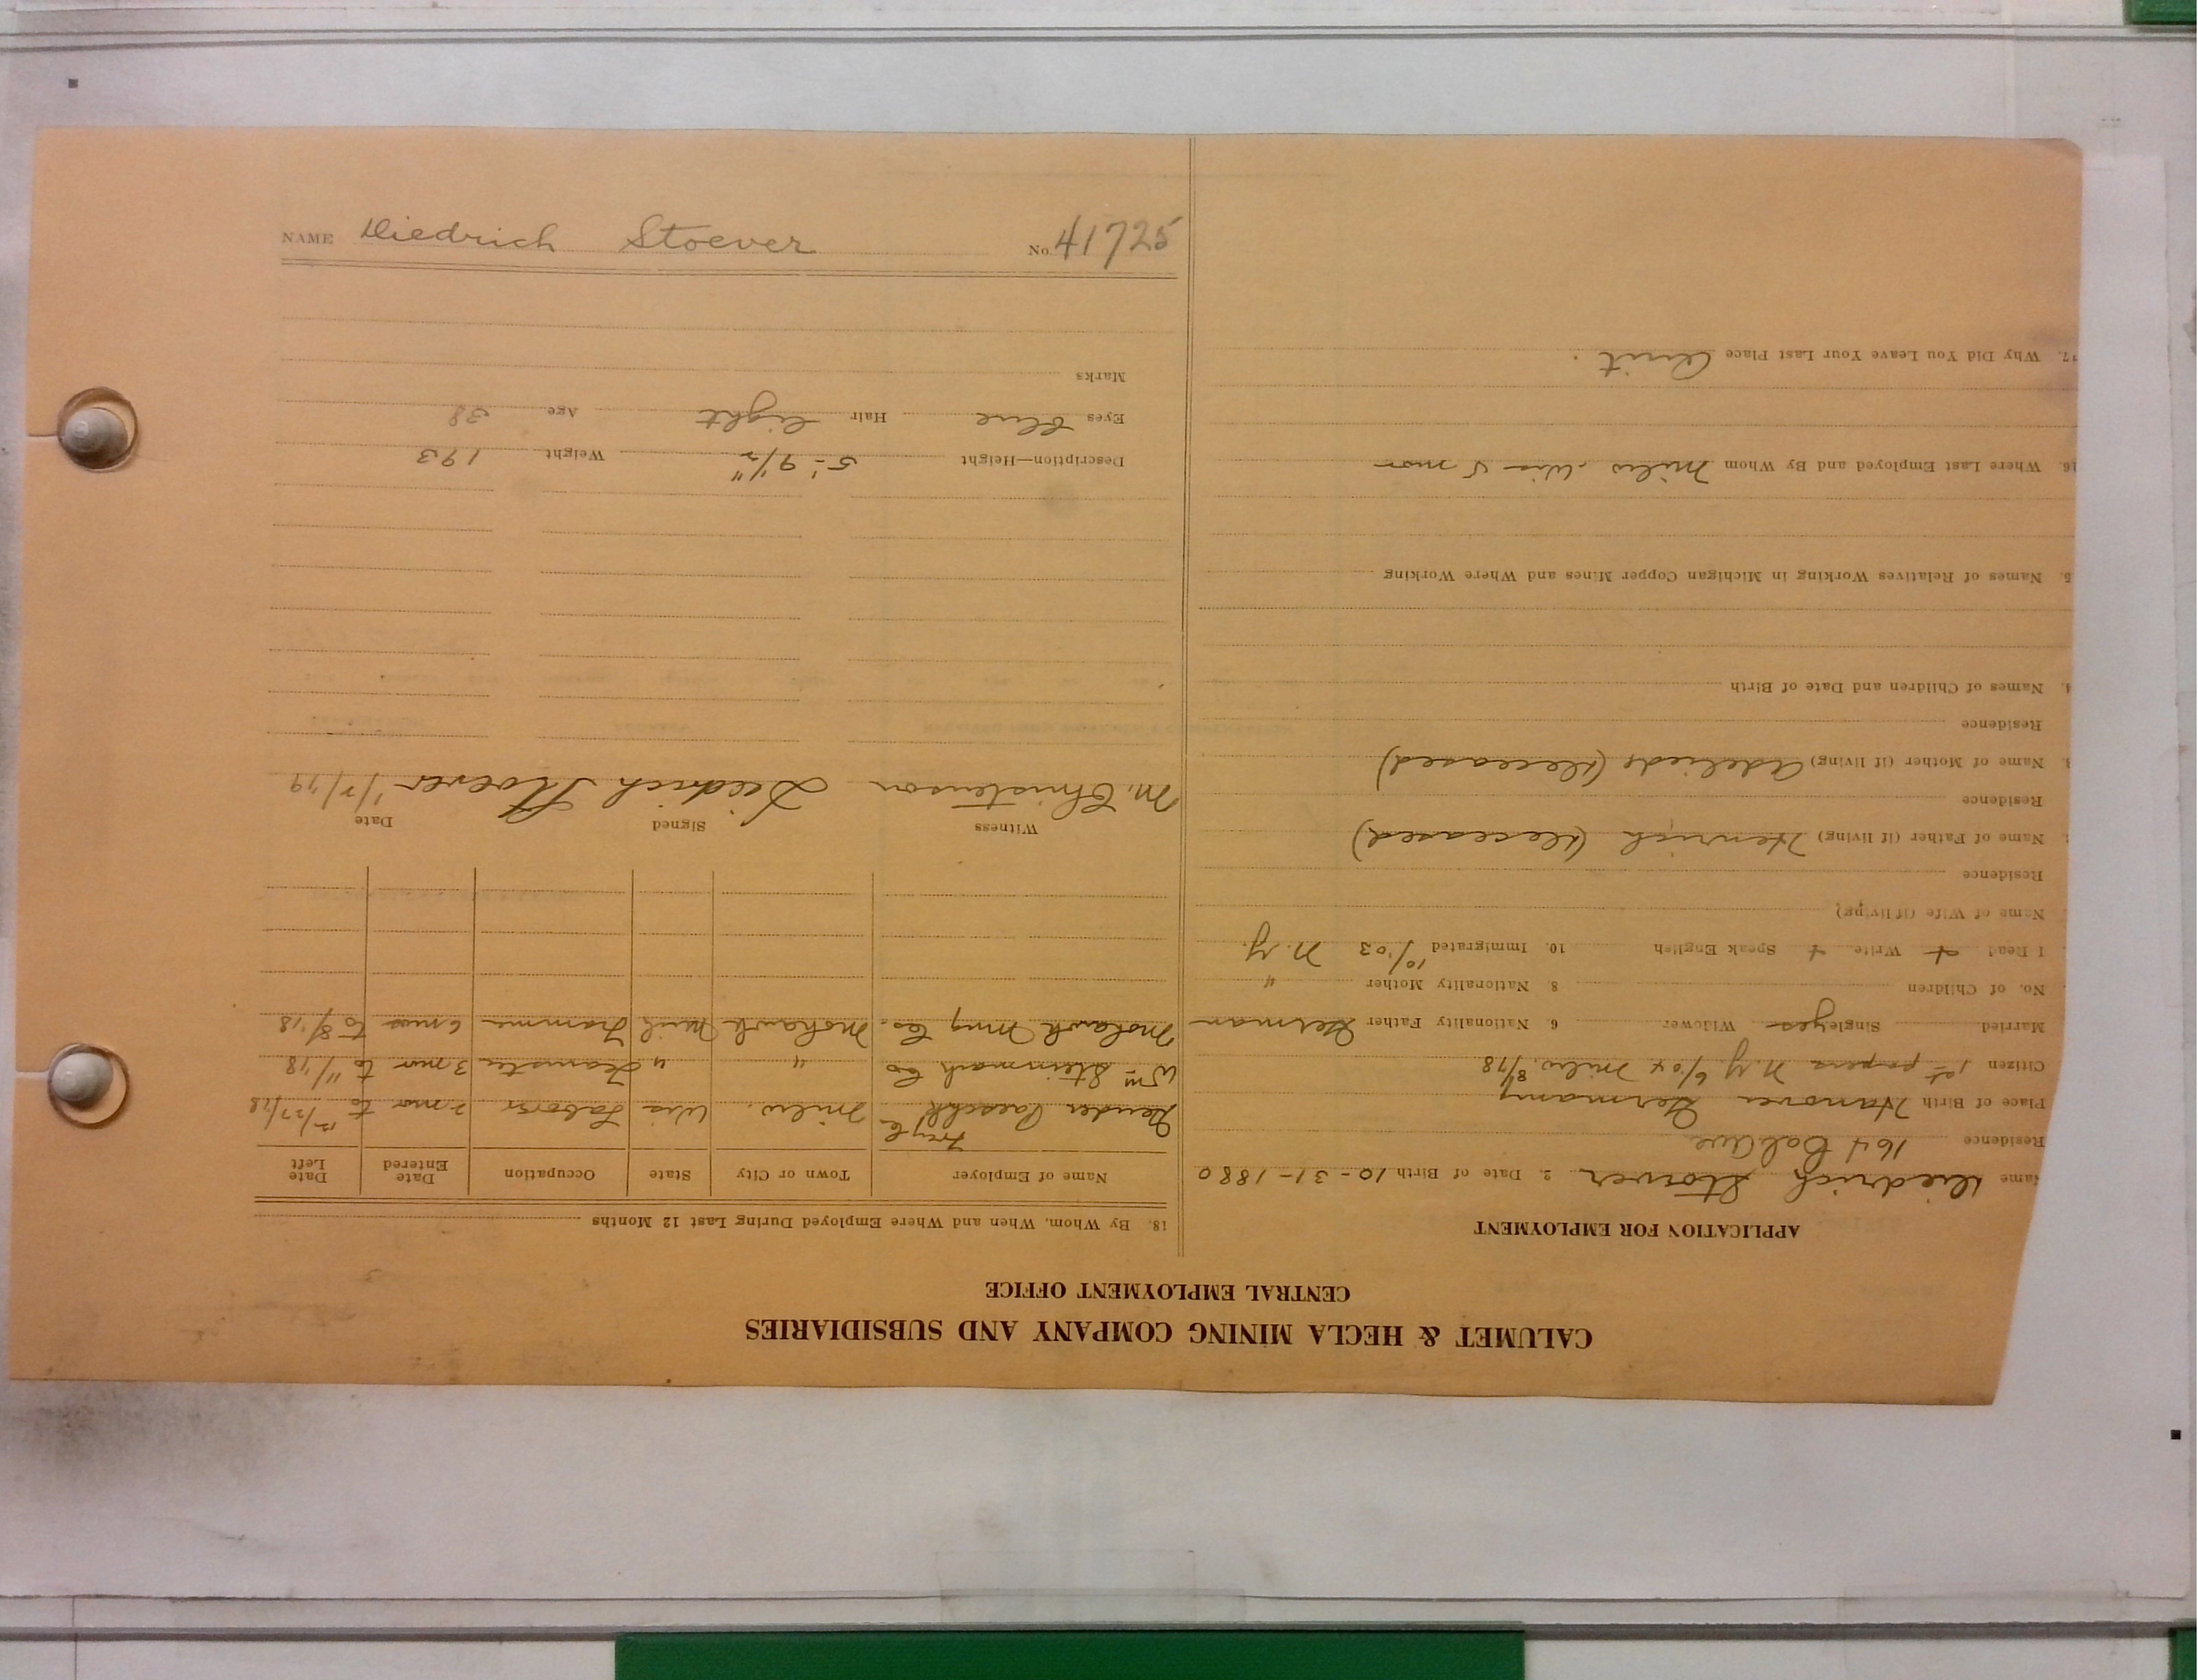 CALUMET & HECLA MINING COMPANY AND SUBSIDIARIES
CENTRAL EMPLOYMENT OFFICE
APPLICATION FOR EMPLOYMENT
Name Diedrich Stoever 2. Date of Birth 10-31-1880
Residence 164 Cal Ave
Place of Birth Hanover Germany
Citizen 1st papers N.Y. 6/04 Milw. 8/18
Married Single yes Widower 6. Nationality Father German
No. of Children 8. Nationality Mother "
I Read + Write + Speak English 10. Immigrated 10/03 N.Y.
Name of Wife (if living)
Residence
Name of Father (if living) Henrich (deceased)
Residence
3. Name of Mother (if living) (deceased)
Residence
4. Names of Children and Date of Birth
5. Names of Relatives Working in Michigan Copper Mines and Where Working
16. Where Last Employed and By Whom Milw. Wis 5 mos
17. Why Did You Leave Your Last Place Quit.
18. By Whom, When and Where Employed During Last 12 Months
Name of Employer Town or City State Occupation Date Entered Date Left
Milw. Wis Laborer 2 mos to 12/27/18
Wm Steinman Co " " Teamster 3 mos to 11/18
Mohawk Mng Co. Mohawk Mich Trammer 6 mos to 8/18
Witness Signed Date
M. Christenson Diedrich Stoever 1/7/19
Description—Height 5'-9 1/2" Weight 193
Eyes blue Hair light Age 38
Marks
NAME Diedrich Stoever No. 41725